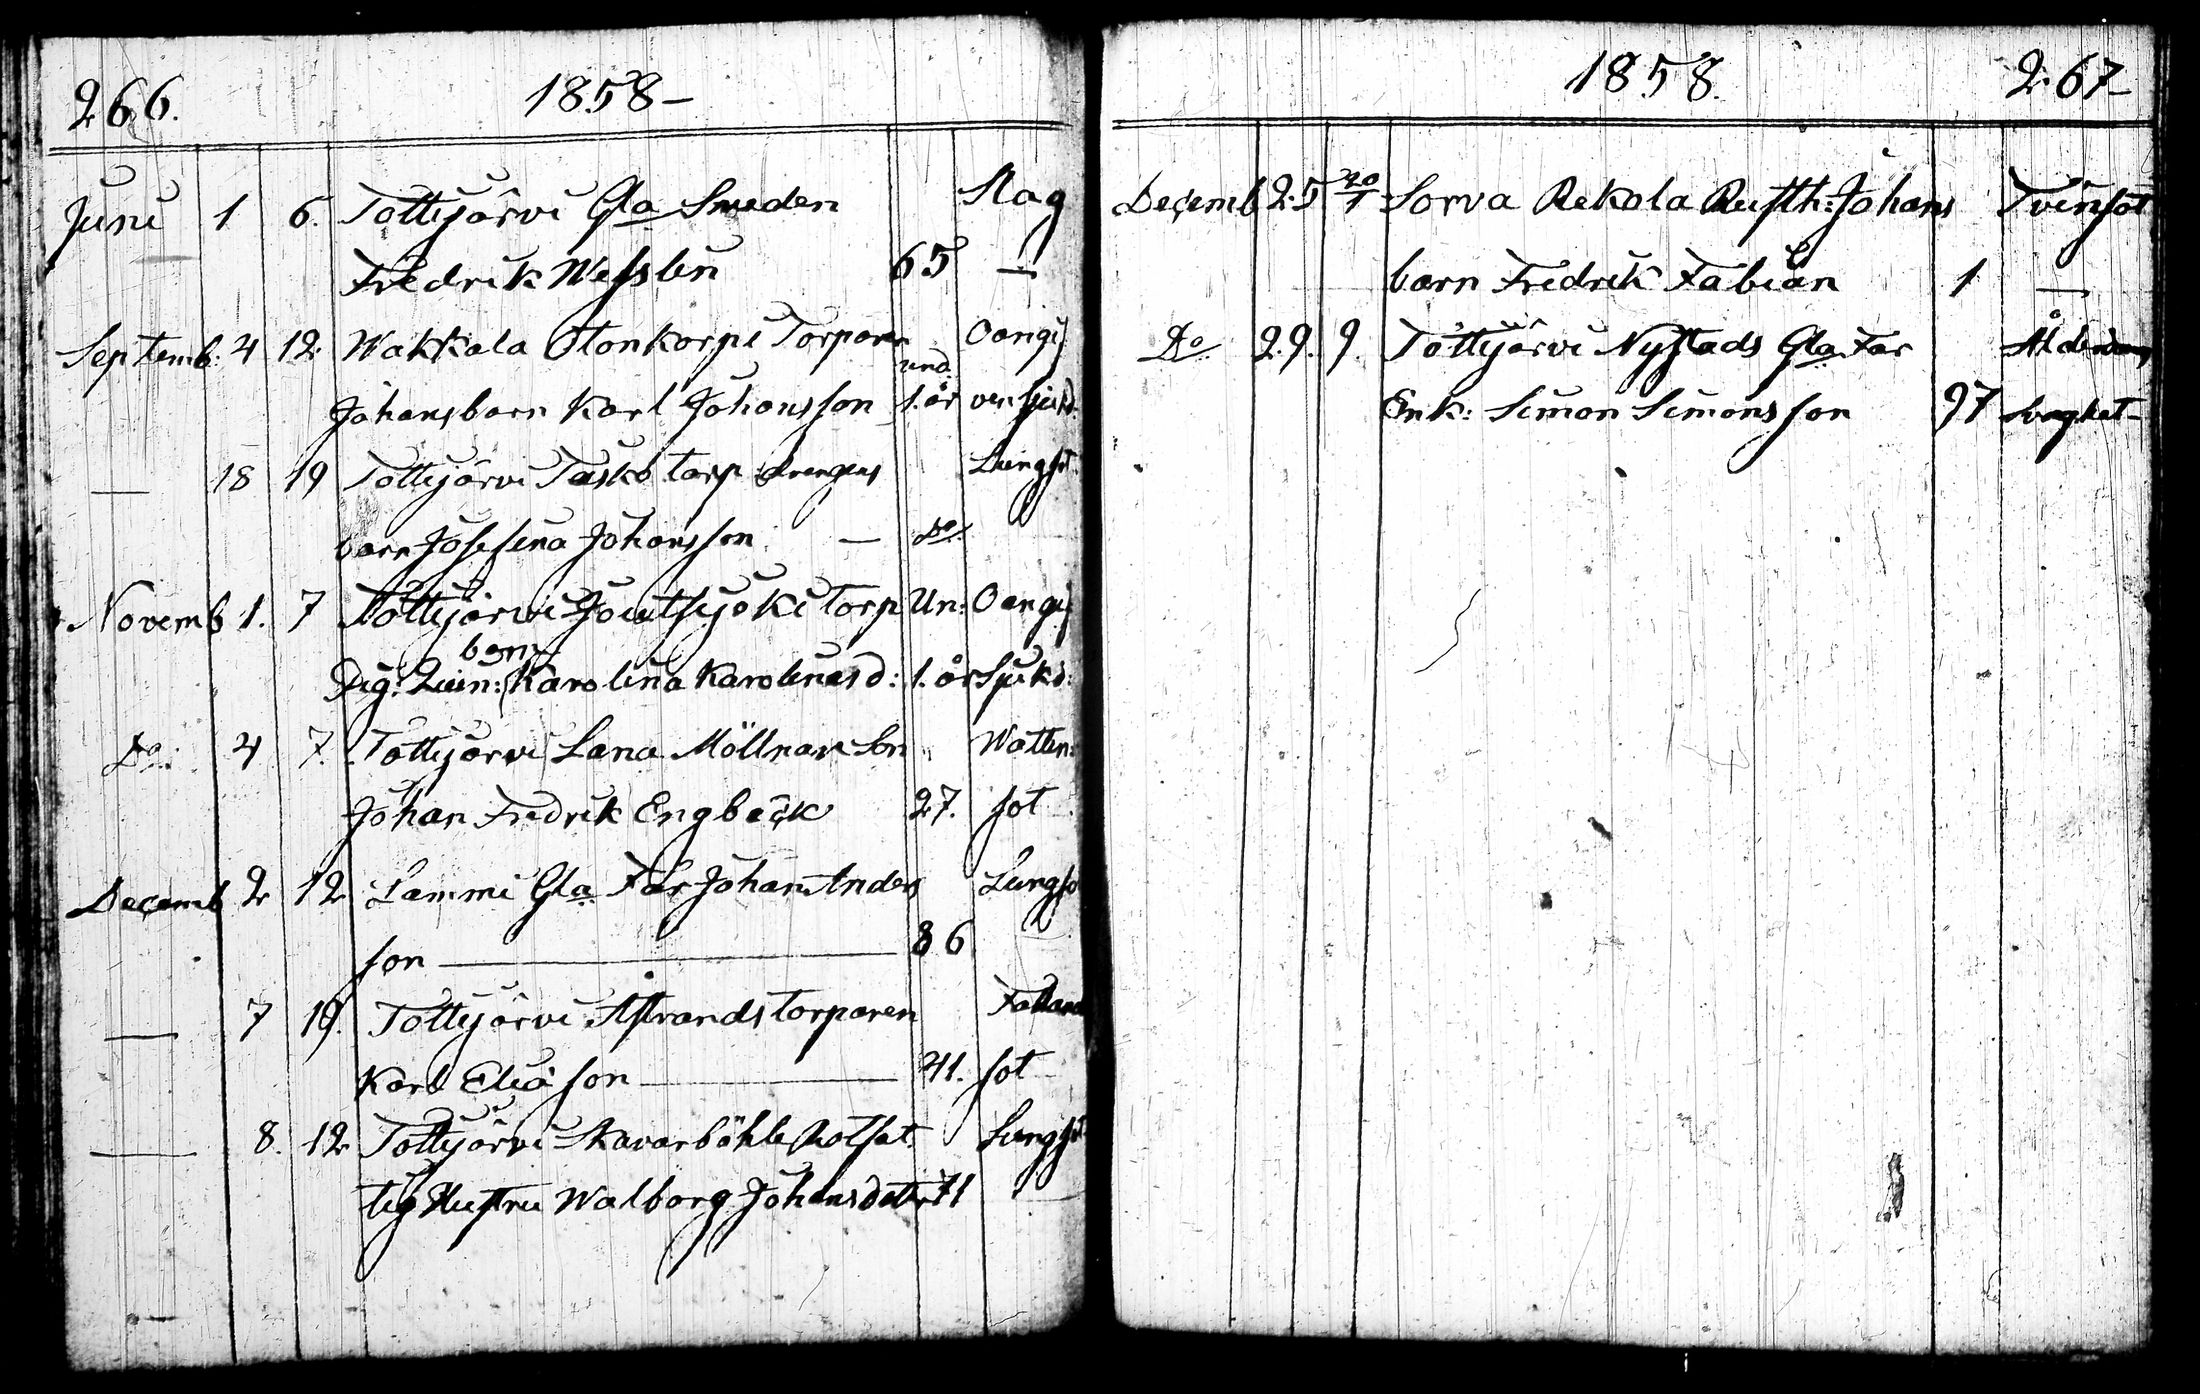 266. 1858-
Juni 1 6. Tottijärvi Gla Smeden Slag
Fredrik Wesslin 65 —
Septemb: 4 12 Wakkala Otonkorpi Torparen Oangif
und.
Johans barn Karl Johansson 1. år ven sjukd.
— 18 19 Tottijärvi Tasko torp drengens Lungsot.
barn Josefina Johansson — Do
Novemb 1. 7 Tottijärvi Joutsijoki torp Un: Oangif
barn
Pig: Karolina Karolinasd: 1. år Sjukd:
Do: 4 7. Tottijärvi Lana Möllnare Son Watten:
Johan Fredrik Engbäck 27. sot
Decemb 2 12 Lammi Gla Far Johan Anders Lungsot
son — 86
— 7 19. Tottijärvi Åstrands torparen Fallande
Karl Eliasson — 41. sot
— 8. 12 Tottijärvi Skavarböhle Lungsot
tig Hustru Walborg Johansdotter 71
1858. 267-
Decemb 25 Sorva Rekola Rusth: Johans Tvinsot
barn Fredrik Fabian 1 —
Do 29. 9. Tottijärvi Nystads Gla Far Ålderdoms
Enk: Simon Simonsson 97 svaghet-